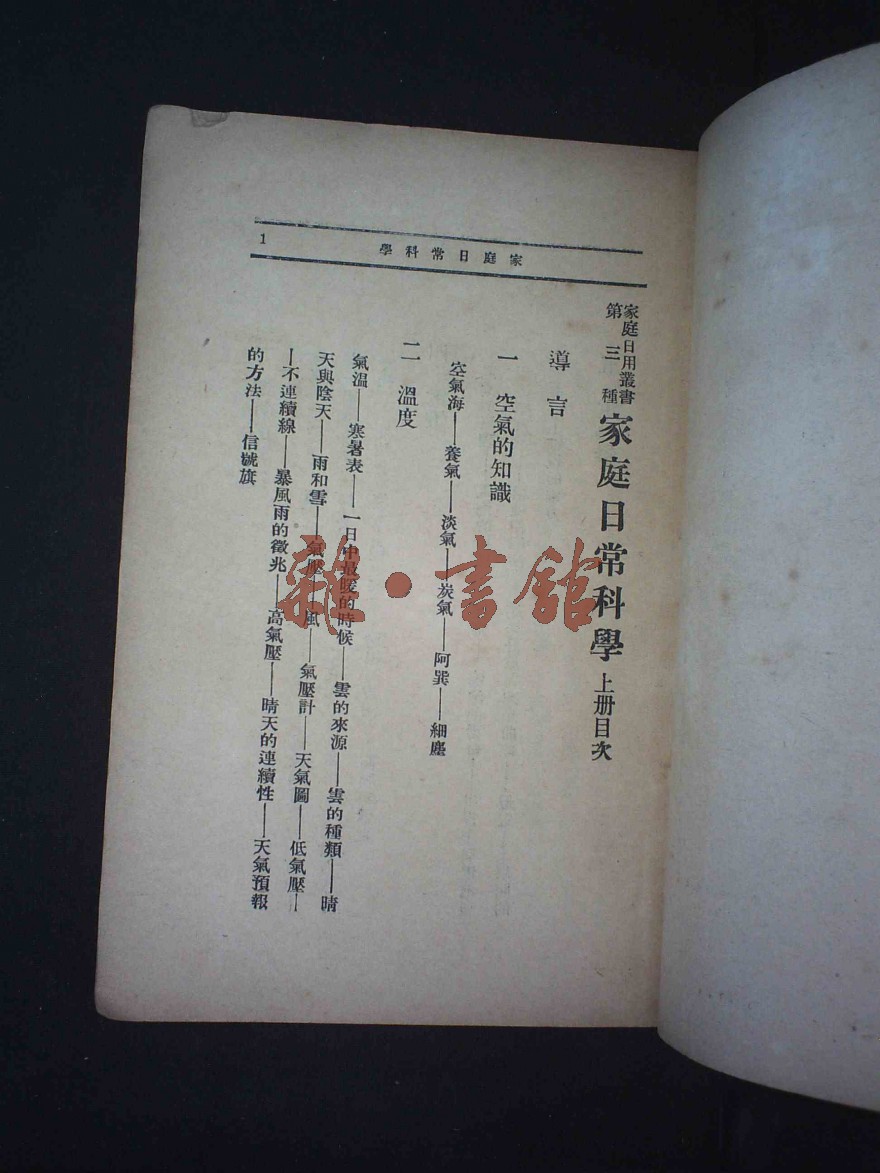 1
家庭日常科學
家庭日用叢書
第三種
家庭日常科學 上册目次
導言
一 空氣的知識
空氣海——養氣——淡氣——炭氣——阿巽——細塵
二 溫度
氣温——寒暑表——一日中最暖的時候——雲的來源——雲的種類——晴
天與陰天——雨和雪——氣壓——風——氣壓計——天氣圖——低氣壓—
—不連續線——暴風雨的徵兆——高氣壓——晴天的連續性——天氣預報
的方法——信號旗
雜·書館